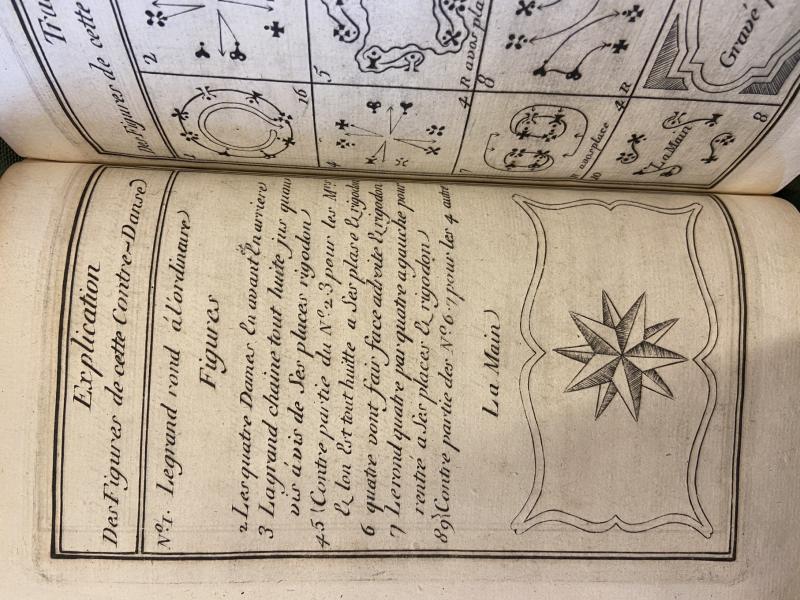 Explication
Des Figures de cette Contre-Danse
Nº1. Le grand rond á l'ordinaire
Figures
2 Les quatre Dames En avant et En arriere
3 La grand chaine tout huite jus quau
vis á vis de Ses places rigodon
4 5 Contre partie du Nº 2 3 pour les Mrs
& lon Est tout huitte a Ses plase & rigodon
6 quatre vont fair face adroite & rigodon
7 Le rond quatre par quatre a gauche pour
rentré a Ses places & rigodon
8 9 Contre partie des Nº 6 7 pour les 4 autre
La Main
Figures de cette
1
16
2
4
5
4 R a vos pla
7
a vos place
4 R
8
10
La Main
8
Gravé